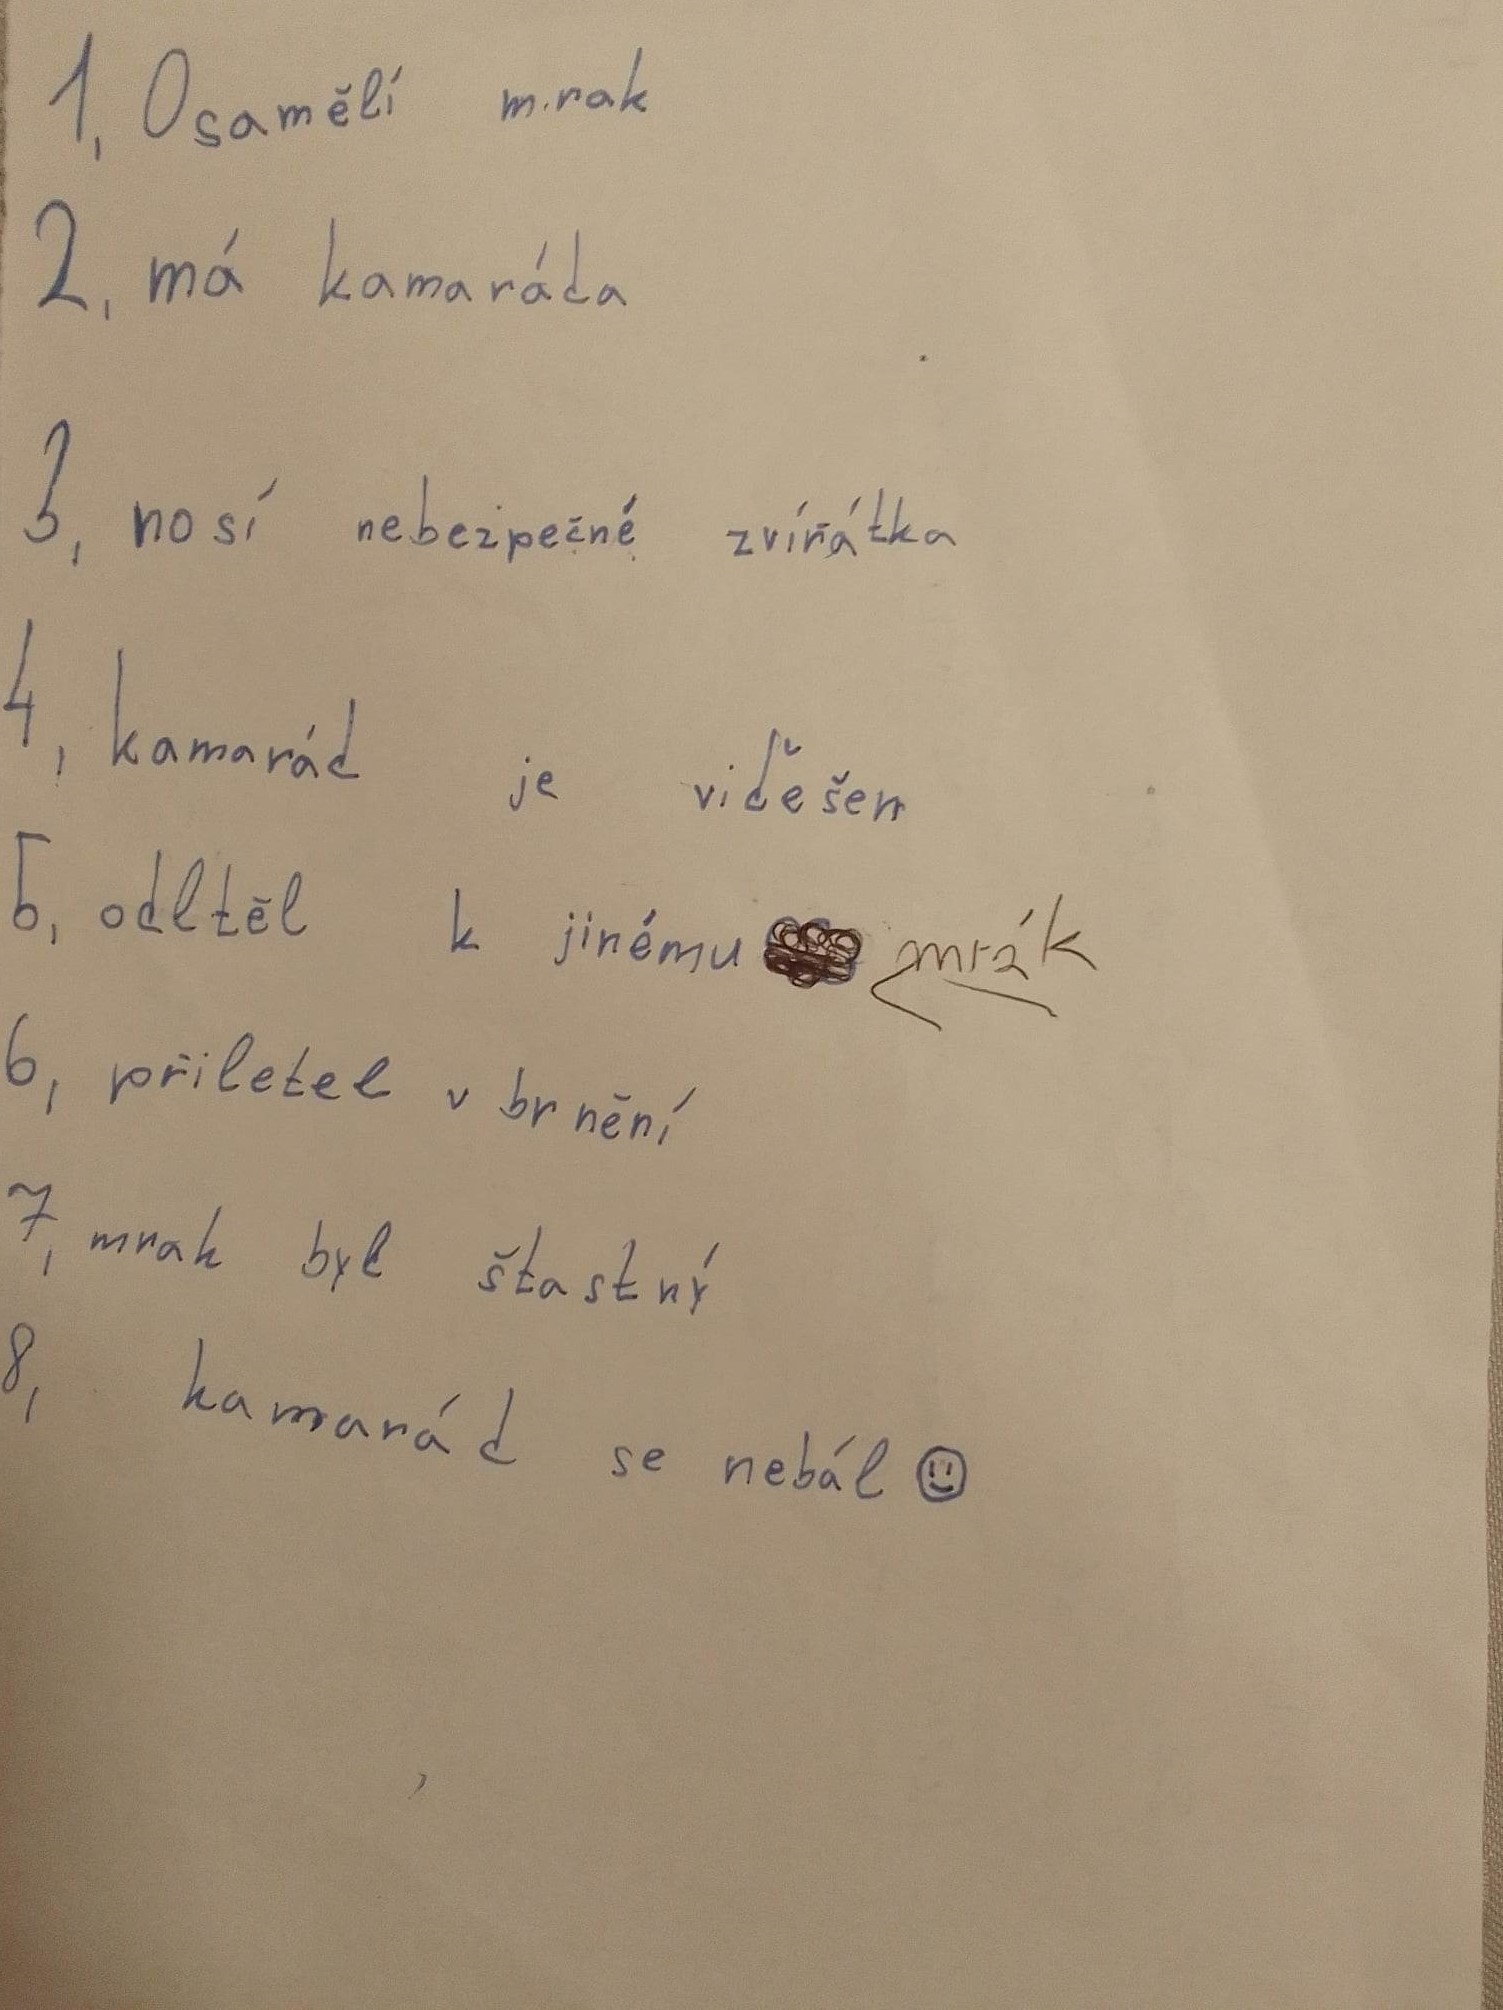 1, Osamělí mrak
2, má kamaráda
3, nosí nebezpečné zvířátka
4, kamarád je viděšen
5, odltěl k jinému mrák
6, přiletel v brnění
7, mrak byl štastný
8, kamarád se nebál